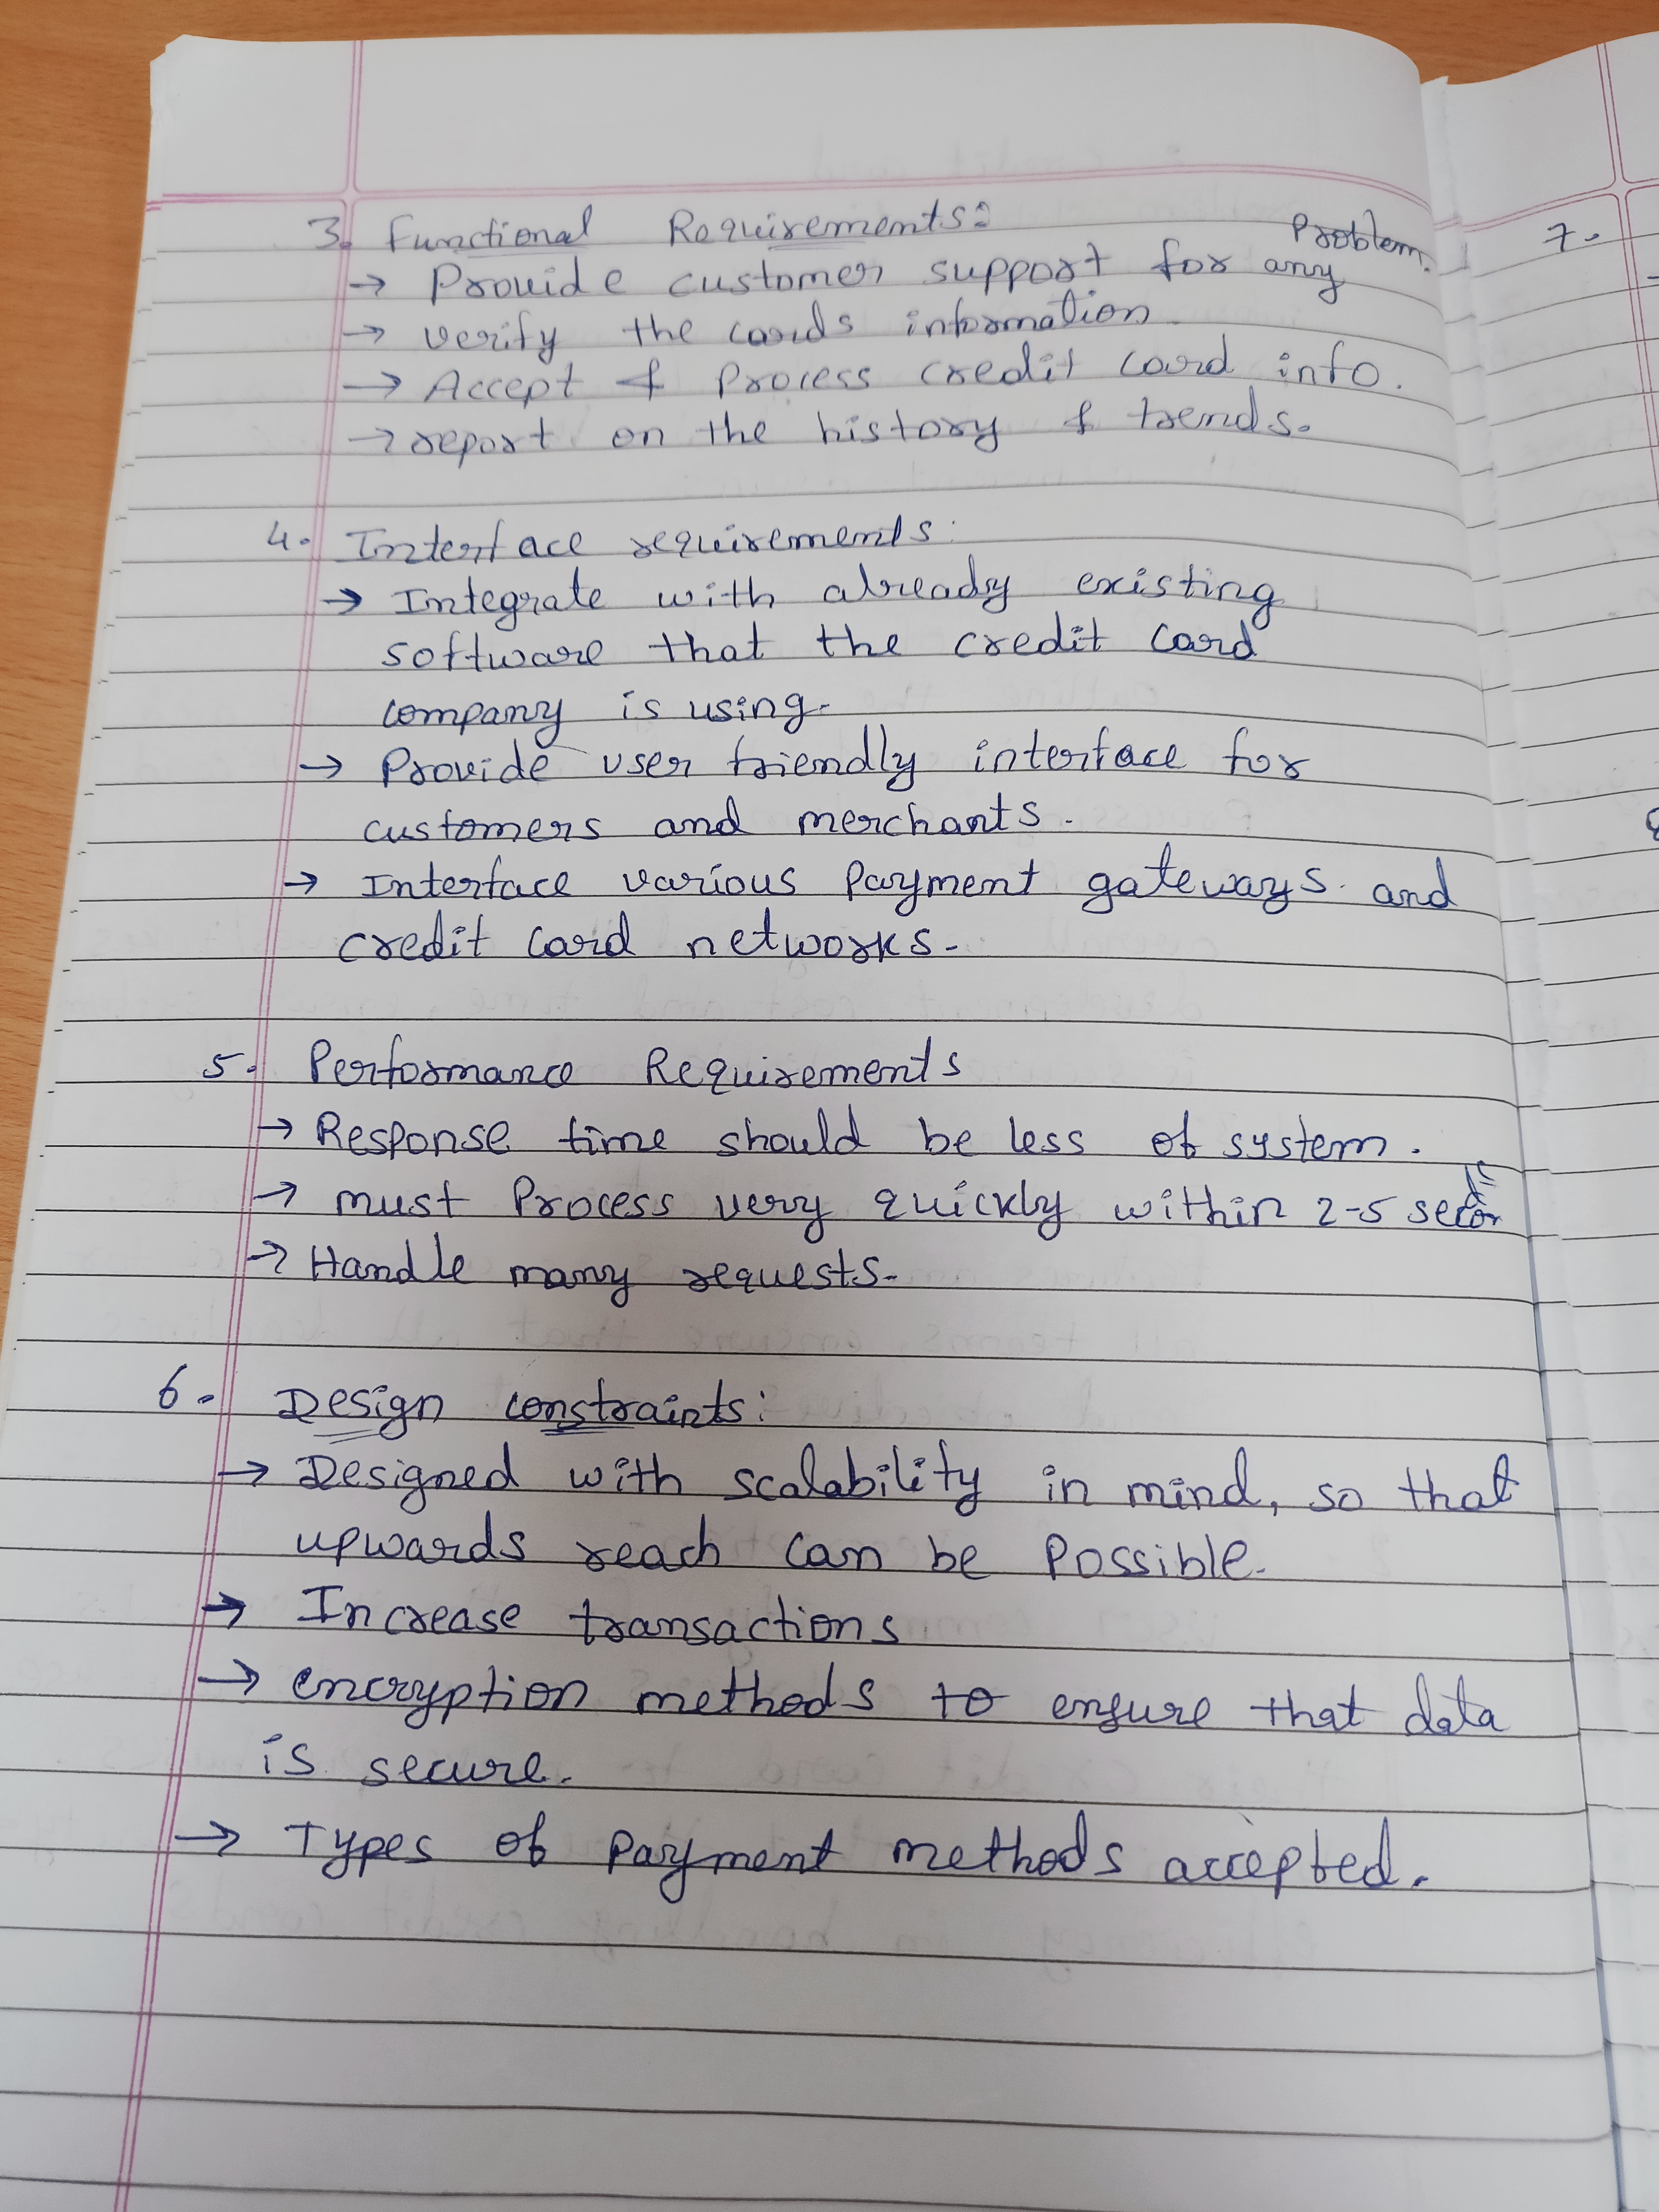 3. Functional Requirements:
→ Provide customer support for any Problem.
→ verify the cards information.
→ Accept & Process credit card info.
→ report on the history & trends.
4. Interface requirements:
→ Integrate with already existing
software that the credit card
company is using.
→ Provide user friendly interface for
customers and merchants.
→ Interface various Payment gateways and
credit card networks.
5. Performance Requirements
→ Response time should be less of system.
→ must Process very quickly within 2-5
→ Handle many requests.
6. Design constraints:
→ Designed with scalability in mind, so that
upwards reach can be Possible.
→ Increase transactions
→ encryption methods to ensure that data
is secure.
→ Types of Payment methods accepted.
7.